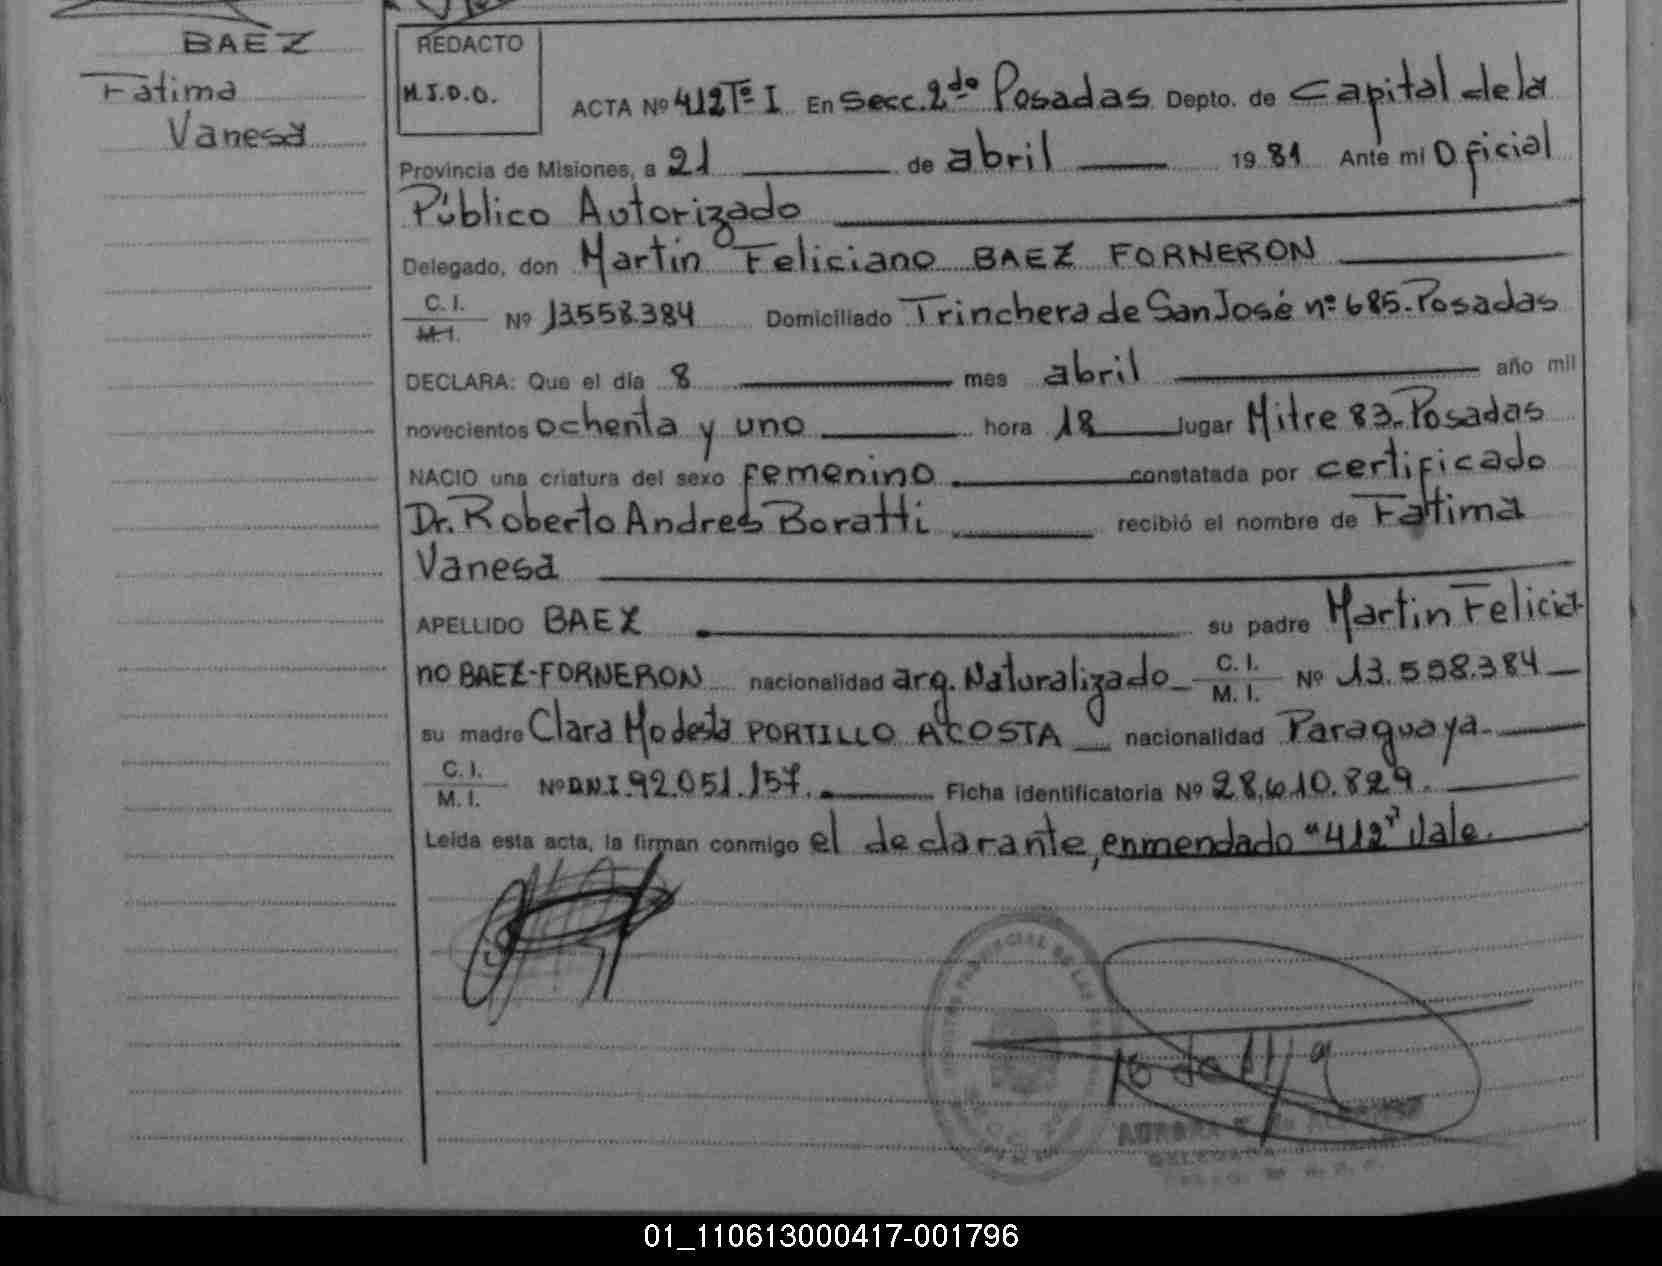 BAEZ
Fatima
Vanesa
REDACTO
M.I.D.O.
ACTA Nº 412 Tº I En Secc. 2do Posadas Depto. de Capital de la
Provincia de Misiones, a 21 de abril 19 81 Ante mi Oficial
Público Autorizado
Delegado, don Martin Feliciano BAEZ FORNERON
C. I.
M. I.
Nº 13.558.384 Domiciliado Trinchera de San José nº 685. Posadas
DECLARA: Que el día 8 mes abril año mil
novecientos ochenta y uno hora 18 lugar Mitre 83. Posadas
NACIO una criatura del sexo femenino constatada por certificado
Dr. Roberto Andres Boratti recibió el nombre de Fatima
Vanesa
APELLIDO BAEZ su padre Martin Felicia-
no BAEZ-FORNERON nacionalidad arg. Naturalizado C. I. M. I. Nº 13.558.384
su madre Clara Modesta PORTILLO ACOSTA nacionalidad Paraguaya
C. I.
M. I.
Nº D.N.I. 92.051.157. Ficha identificatoria Nº 28.610.829.
Leída esta acta, la firman conmigo el declarante, enmendado "412" Vale.
01_110613000417-001796